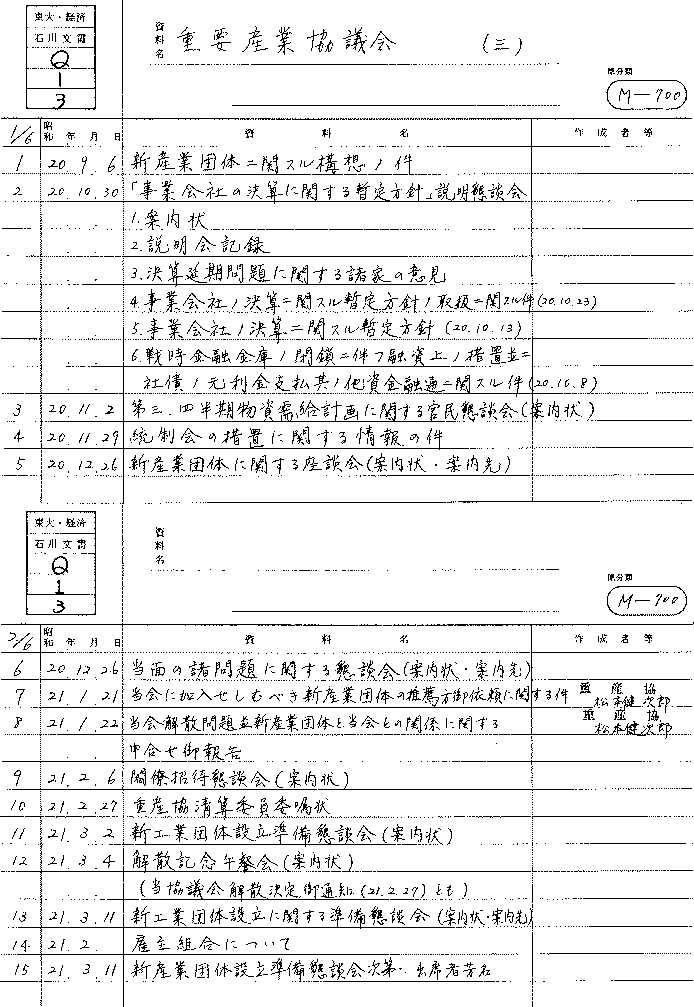 東大・経済
石川文書
Q
1
3
資料名 重要産業協議会 (三)
原分類
M-700
1/6 昭和 年 月 日 資料名 作成者等
1 20.9.6 新産業団体ニ関スル構想ノ件
2 20.10.30 「事業会社の決算に関する暫定方針」説明懇談会
1.案内状
2.説明会記録
3.決算延期問題に関する諸家の意見
4.事業会社ノ決算ニ関スル暫定方針ノ取扱ニ関スル件(20.10.23)
5.事業会社ノ決算ニ関スル暫定方針 (20.10.13)
6.戦時金融金庫ノ閉鎖ニ伴フ融資上ノ措置並ニ
社債ノ元利金支払其ノ他資金融通ニ関スル件(20.10.8)
3 20.11.2 第三.四半期物資需給計画に関する官民懇談会(案内状)
4 20.11.29 統制会の措置に関する情報の件
5 20.12.26 新産業団体に関する座談会(案内状・案内先)
東大・経済
石川文書
Q
1
3
資料名
原分類
M-700
2/6 昭和 年 月 日 資料名 作成者等
6 20.12.26 当面の諸問題に関する懇談会(案内状・案内先)
7 21.1.21 当会に加入せしむべき新産業団体の推薦方御依頼に関する件 重産協 松本健次郎
8 21.1.22 当会解散問題並新産業団体と当会との関係に関する 重産協 松本健次郎
申合せ御報告
9 21.2.6 閣僚招待懇談会(案内状)
10 21.2.27 重産協清算委員委嘱状
11 21.3.2 新工業団体設立準備懇談会(案内状)
12 21.3.4 解散記念午餐会(案内状)
(当協議会解散決定御通知(21.2.27)とも)
13 21.3.11 新工業団体設立に関する準備懇談会(案内状・案内先)
14 21.2. 雇主組合について
15 21.3.11 新産業団体設立準備懇談会次第・出席者芳名